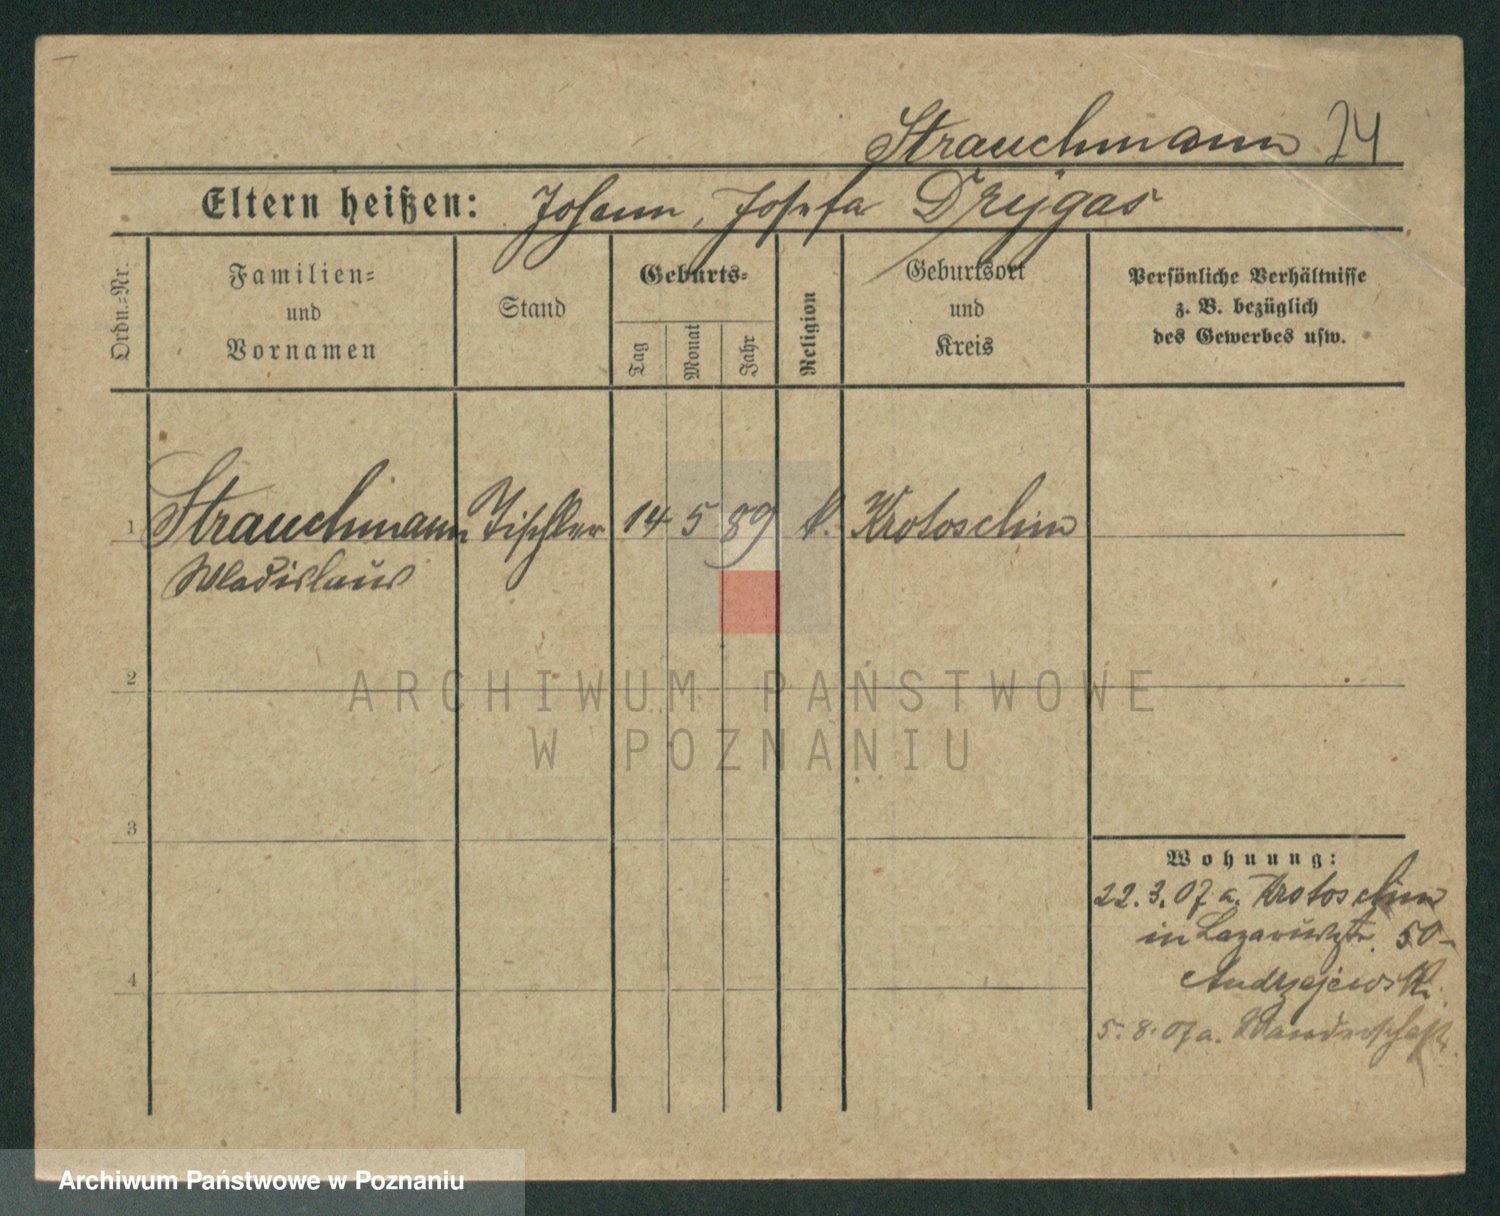 Strauchmann 24
Eltern heißen: Johann, Josefa Drygas
Ordn.-Nr.
Familien-
und
Vornamen
Stand
Geburts-
Tag
Monat
Jahr
Religion
Geburtsort
und
Kreis
Persönliche Verhältnisse
z. B. bezüglich
des Gewerbes usw.
1 Strauchmann Tischler 14 5 89 k. Krotoschin
Wladislaus
2
ARCHIWUM PAŃSTWOWE
W POZNANIU
3
Wohnung:
22.3.07 a. Krotoschin
in Lazarusstr. 50
4
Andrzejewski
5.8.07 a. Wanderschaft
Archiwum Państwowe w Poznaniu